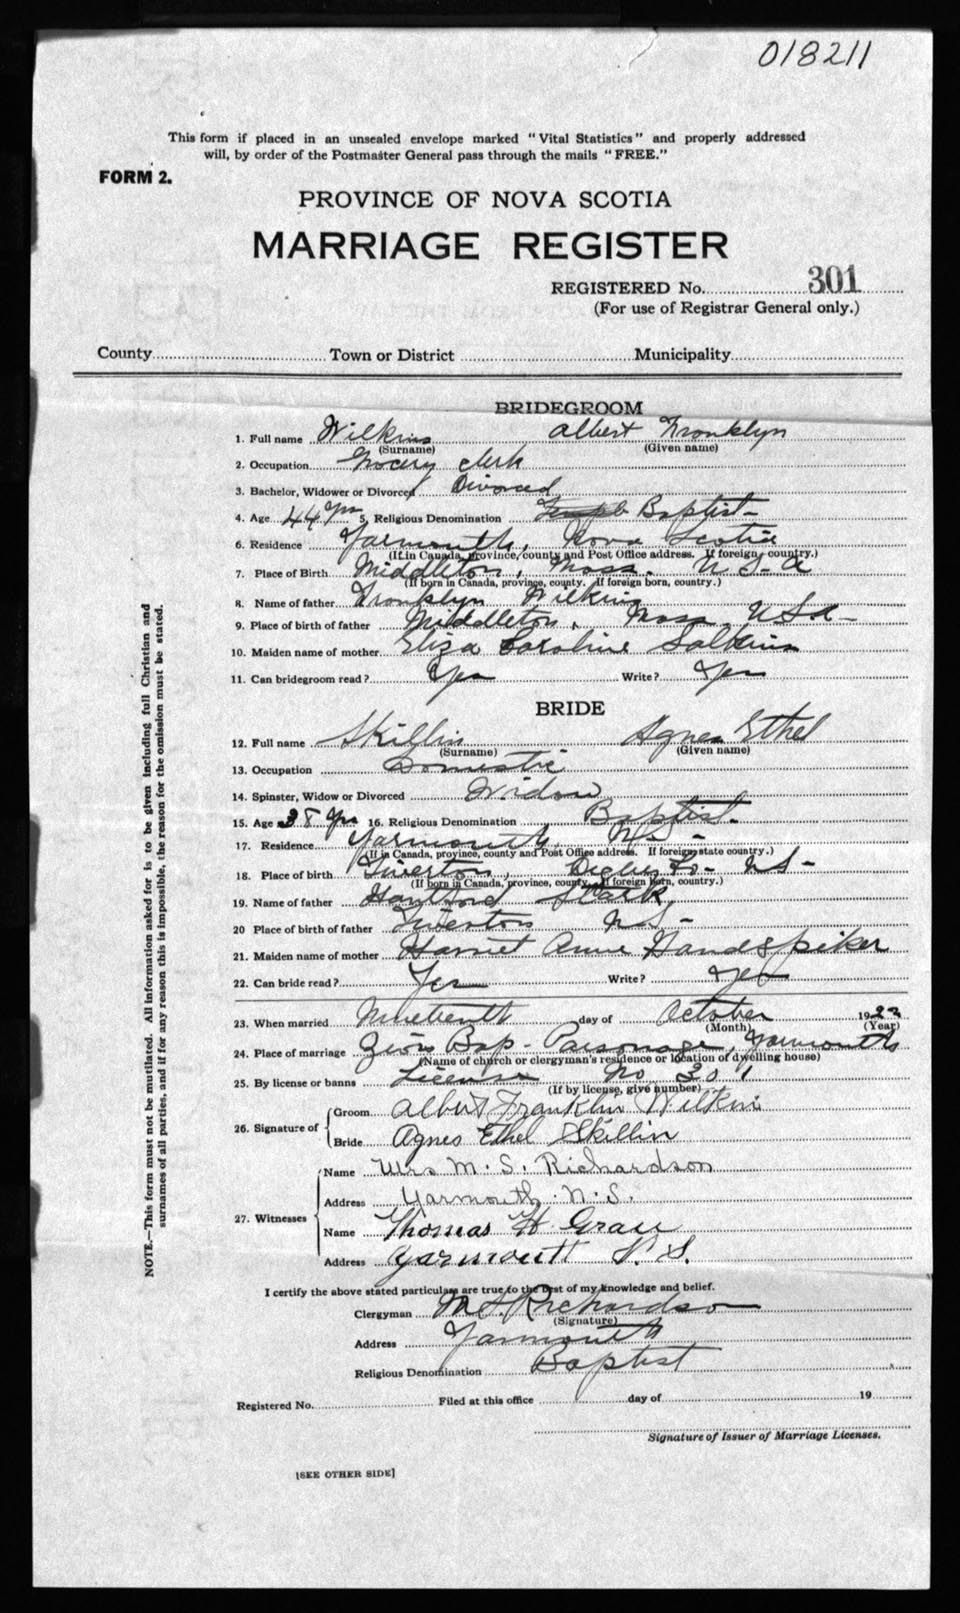 018211
This form if placed in an unsealed envelope marked "Vital Statistics" and properly addressed
will, by order of the Postmaster General pass through the mails "FREE."
FORM 2.
PROVINCE OF NOVA SCOTIA
MARRIAGE REGISTER
REGISTERED No. 301
(For use of Registrar General only.)
County Town or District Municipality
BRIDEGROOM
1. Full name Wilkins Albert Franklyn
(Surname) (Given name)
2. Occupation Grocery clerk
3. Bachelor, Widower or Divorced Divorced
4. Age 44 yrs 5. Religious Denomination Baptist
6. Residence Yarmouth, Nova Scotia
(If in Canada, province, county and Post Office address. If foreign, country.)
7. Place of Birth Middleton, Mass. U.S.A
(If born in Canada, province, county. If foreign born, country.)
8. Name of father Franklyn Wilkins
9. Place of birth of father Middleton, Mass. USA
10. Maiden name of mother Eliza Caroline
11. Can bridegroom read? Yes Write? Yes
BRIDE
12. Full name Skillin Agnes Ethel
(Surname) (Given name)
13. Occupation Domestic
14. Spinster, Widow or Divorced Widow
15. Age 38 yrs 16. Religious Denomination Baptist
17. Residence Yarmouth, N.S.
(If in Canada, province, county and Post Office address. If foreign state country.)
18. Place of birth Tiverton, Digby Co- NS-
(If born in Canada, province, county. If foreign born, country.)
19. Name of father Stark
20 Place of birth of father Tiverton N.S-
21. Maiden name of mother Harriet Anne Handspiker
22. Can bride read? Yes Write? Yes
23. When married Nineteenth day of October 1922
(Month) (Year)
24. Place of marriage Zion Bap- Parsonage, Yarmouth
(Name of church or clergyman's residence or location of dwelling house)
25. By license or banns License No 301
(If by license, give number)
26. Signature of Groom Albert Franklin Wilkins
Bride Agnes Ethel Skillin
27. Witnesses Name Mrs M. S. Richardson
Address Yarmouth. N.S.
Name Thomas H Gray
Address Yarmouth N. S.
I certify the above stated particulars are true to the best of my knowledge and belief.
Clergyman M S. Richardson
(Signature)
Address Yarmouth
Religious Denomination Baptist
Registered No. Filed at this office day of 19
Signature of Issuer of Marriage Licenses.
[SEE OTHER SIDE]
NOTE.—This form must not be mutilated. All information asked for is to be given including full Christian and
surnames of all parties, and if for any reason this is impossible, the reason for the omission must be stated.